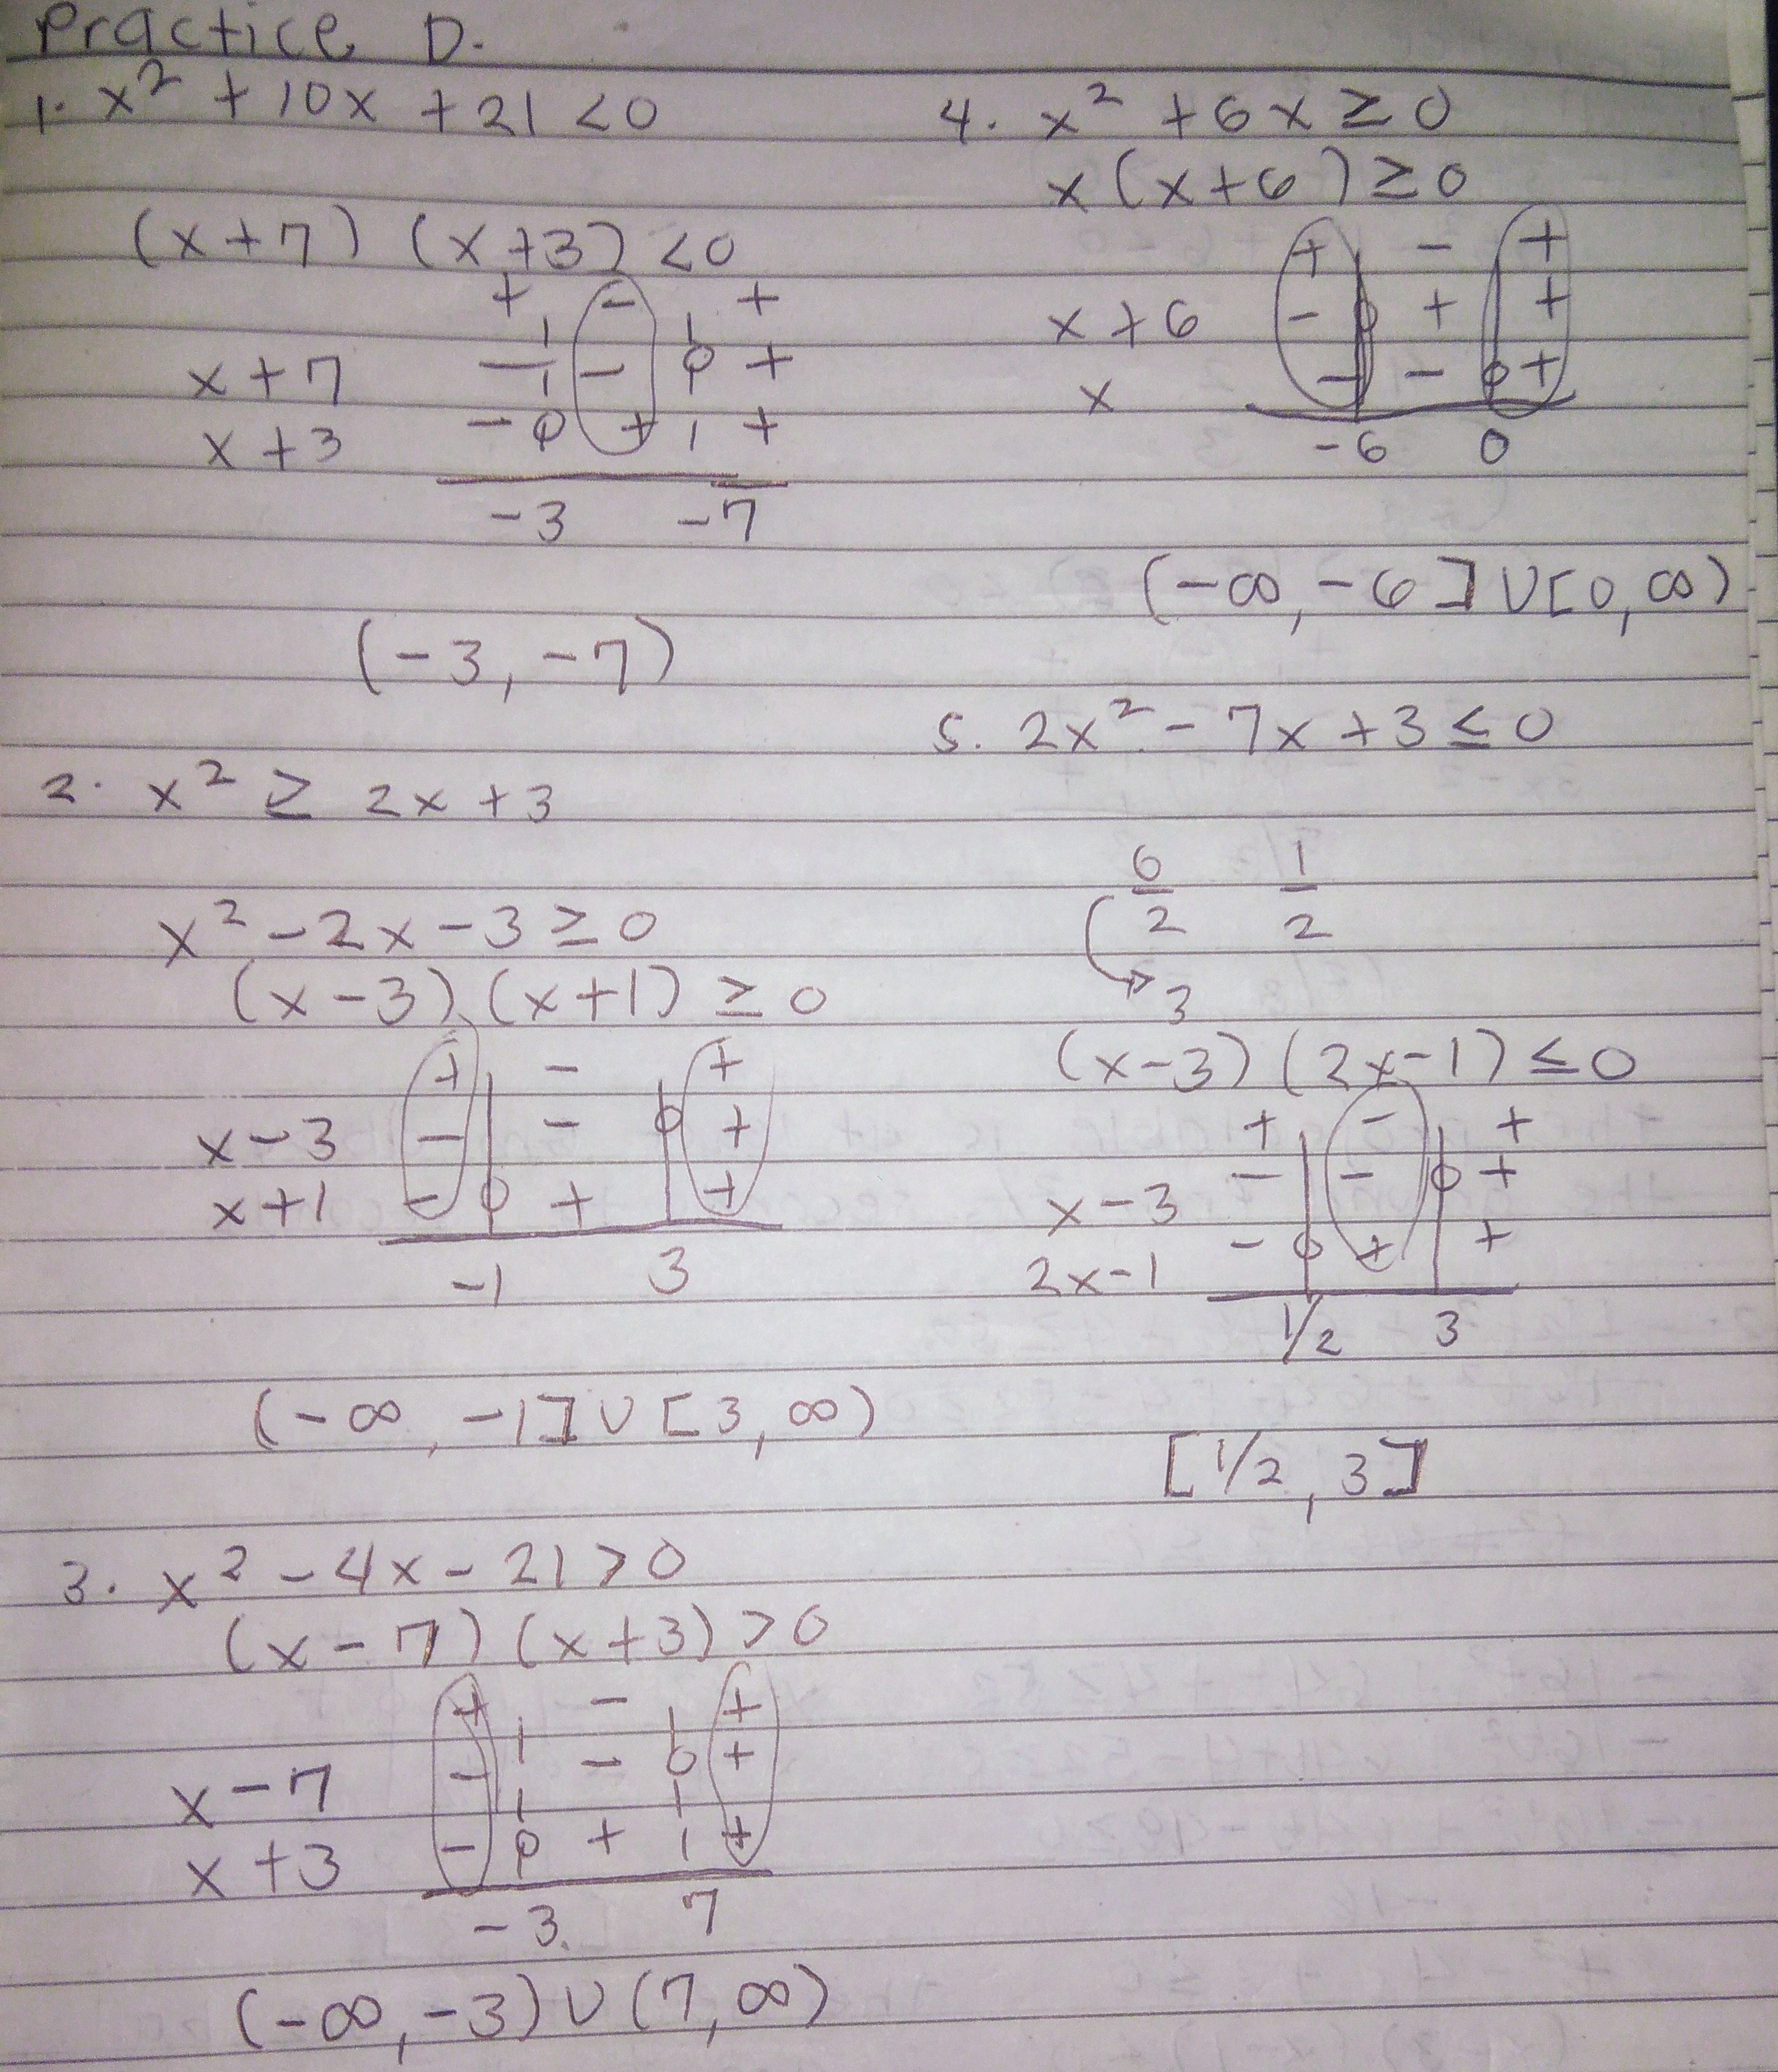 Practice D.
1. x² + 10x + 21 < 0
(x+7) (x+3) < 0
+ - +
x+7 - - 0 +
x+3 - 0 + +
-3 -7
(-3, -7)
2. x² ≥ 2x + 3
x² - 2x - 3 ≥ 0
(x-3) (x+1) ≥ 0
+ - +
x-3 - - 0 +
x+1 - 0 + +
-1 3
(-∞, -1] ∪ [3, ∞)
3. x² - 4x - 21 > 0
(x-7) (x+3) > 0
+ - +
x-7 - - 0 +
x+3 - 0 + +
-3 7
(-∞, -3) ∪ (7, ∞)
4. x² + 6x ≥ 0
x(x+6) ≥ 0
+ - +
x+6 - 0 + +
x - - 0 +
-6 0
(-∞, -6] ∪ [0, ∞)
5. 2x² - 7x + 3 ≤ 0
6/2 1/2
3
(x-3) (2x-1) ≤ 0
+ - +
x-3 - - 0 +
2x-1 - 0 + +
1/2 3
[1/2, 3]